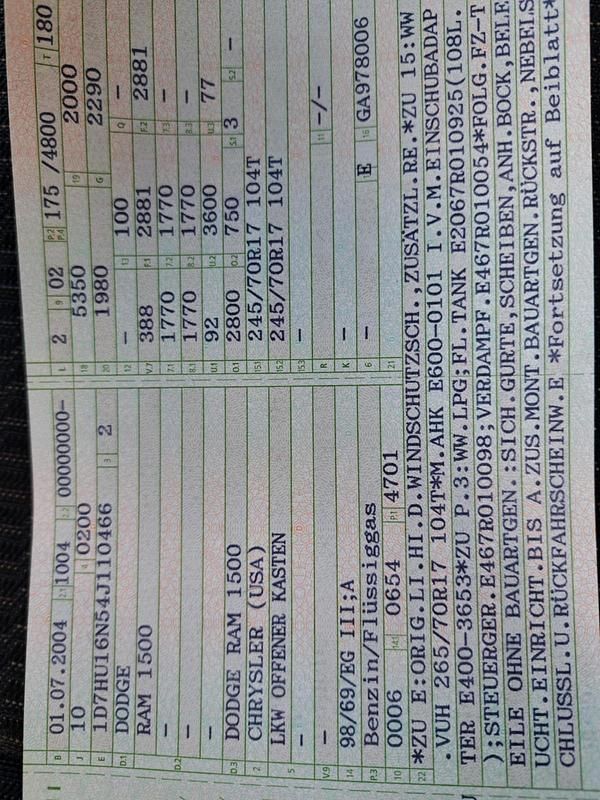 B 01.07.2004 2.1 1004 2.2 00000000–
J 10 4 0200
E 1D7HU16N54J110466 3 2
D.1 DODGE
RAM 1500
–
D.2 –
–
D.3 DODGE RAM 1500
2 CHRYSLER (USA)
5 LKW OFFENER KASTEN
–
V.9 –
14 98/69/EG III;A
P.3 Benzin/Flüssiggas
10 0006 14.1 0654 P.1 4701
L 2 9 02 P.2 P.4 175 /4800 T 180
18 5350 19 2000
20 1980 G 2290
12 – 13 100 Q –
V.7 388 F.1 2881 F.2 2881
7.1 1770 7.2 1770 7.3 –
8.1 1770 8.2 1770 8.3 –
U.1 92 U.2 3600 U.3 77
O.1 2800 O.2 750 S.1 3 S.2 –
15.1 245/70R17 104T
15.2 245/70R17 104T
15.3 –
R 11 –/–
K –
6 – E 16 GA978006
21
22 *ZU E:ORIG.LI.HI.D.WINDSCHUTZSCH.,ZUSÄTZL.RE.*ZU 15:WW
.VUH 265/70R17 104T*M.AHK E600-0101 I.V.M.EINSCHUBADAP
TER E400-3653*ZU P.3:WW.LPG;FL.TANK E2067R010925(108L.
);STEUERGER.E467R010098;VERDAMPF.E467R010054*FOLG.FZ-T
EILE OHNE BAUARTGEN.:SICH.GURTE,SCHEIBEN,ANH.BOCK,BELE
UCHT.EINRICHT.BIS A.ZUS.MONT.BAUARTGEN.RÜCKSTR.,NEBELS
CHLUSSL.U.RÜCKFAHRSCHEINW.E *Fortsetzung auf Beiblatt*